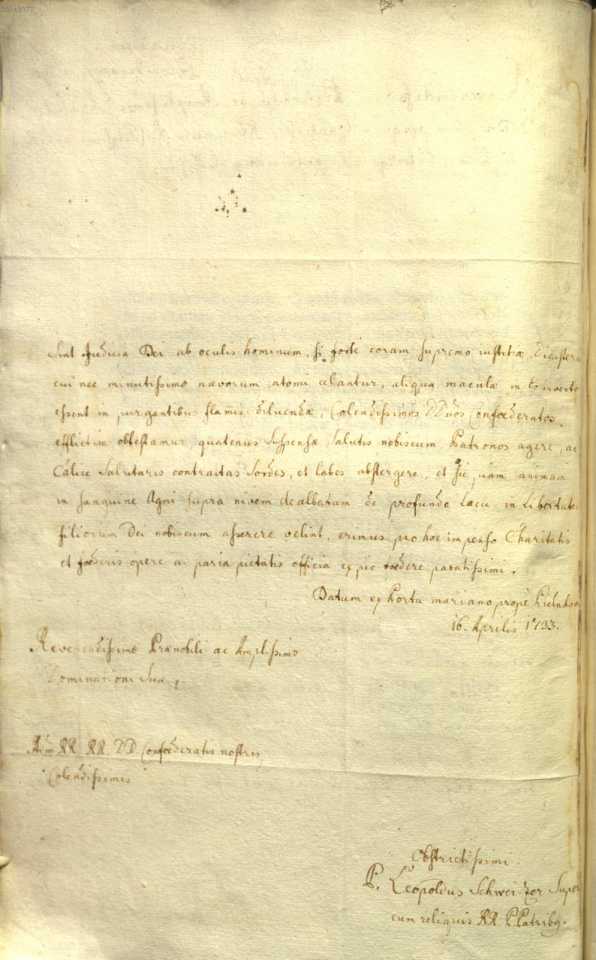 Sint Judicia Dei ab oculis hominum, si forte coram supremo justitiæ
cui nec minutissimo nævorum atomi celantur, aliqua macula in
essent in purgantibus flamis diluenda, Colendissimos DDnos Confœderatos
efflictim obtestamur, quatenus suspensæ salutis nobiscum Patronos agere, ac
Calice salutaris contractas sordes, et labes abstergere, et sic unam animam
in sanguine Agni supra nivem dealbatam de profundo lacu in libertate
filiorum Dei nobiscum asserere velint, erimus pro hoc impenso Charitatis
et fœderis opere ac paria pietatis officia ex pio fœdere paratissimi.
Datum ex Portu mariano prope
16. Aprilis 1733.
Reverendissimo Prænobili ac Amplissimo
Dominationi Suæ,
RR RR DD Confœderatis nostris
Colendissimis
Obstrictissimi
P. Leopoldus Schweitzer Super
cum reliquis RR PPatribq.